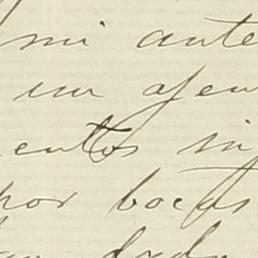 mi ante
un ajeu
entos in
por bocas